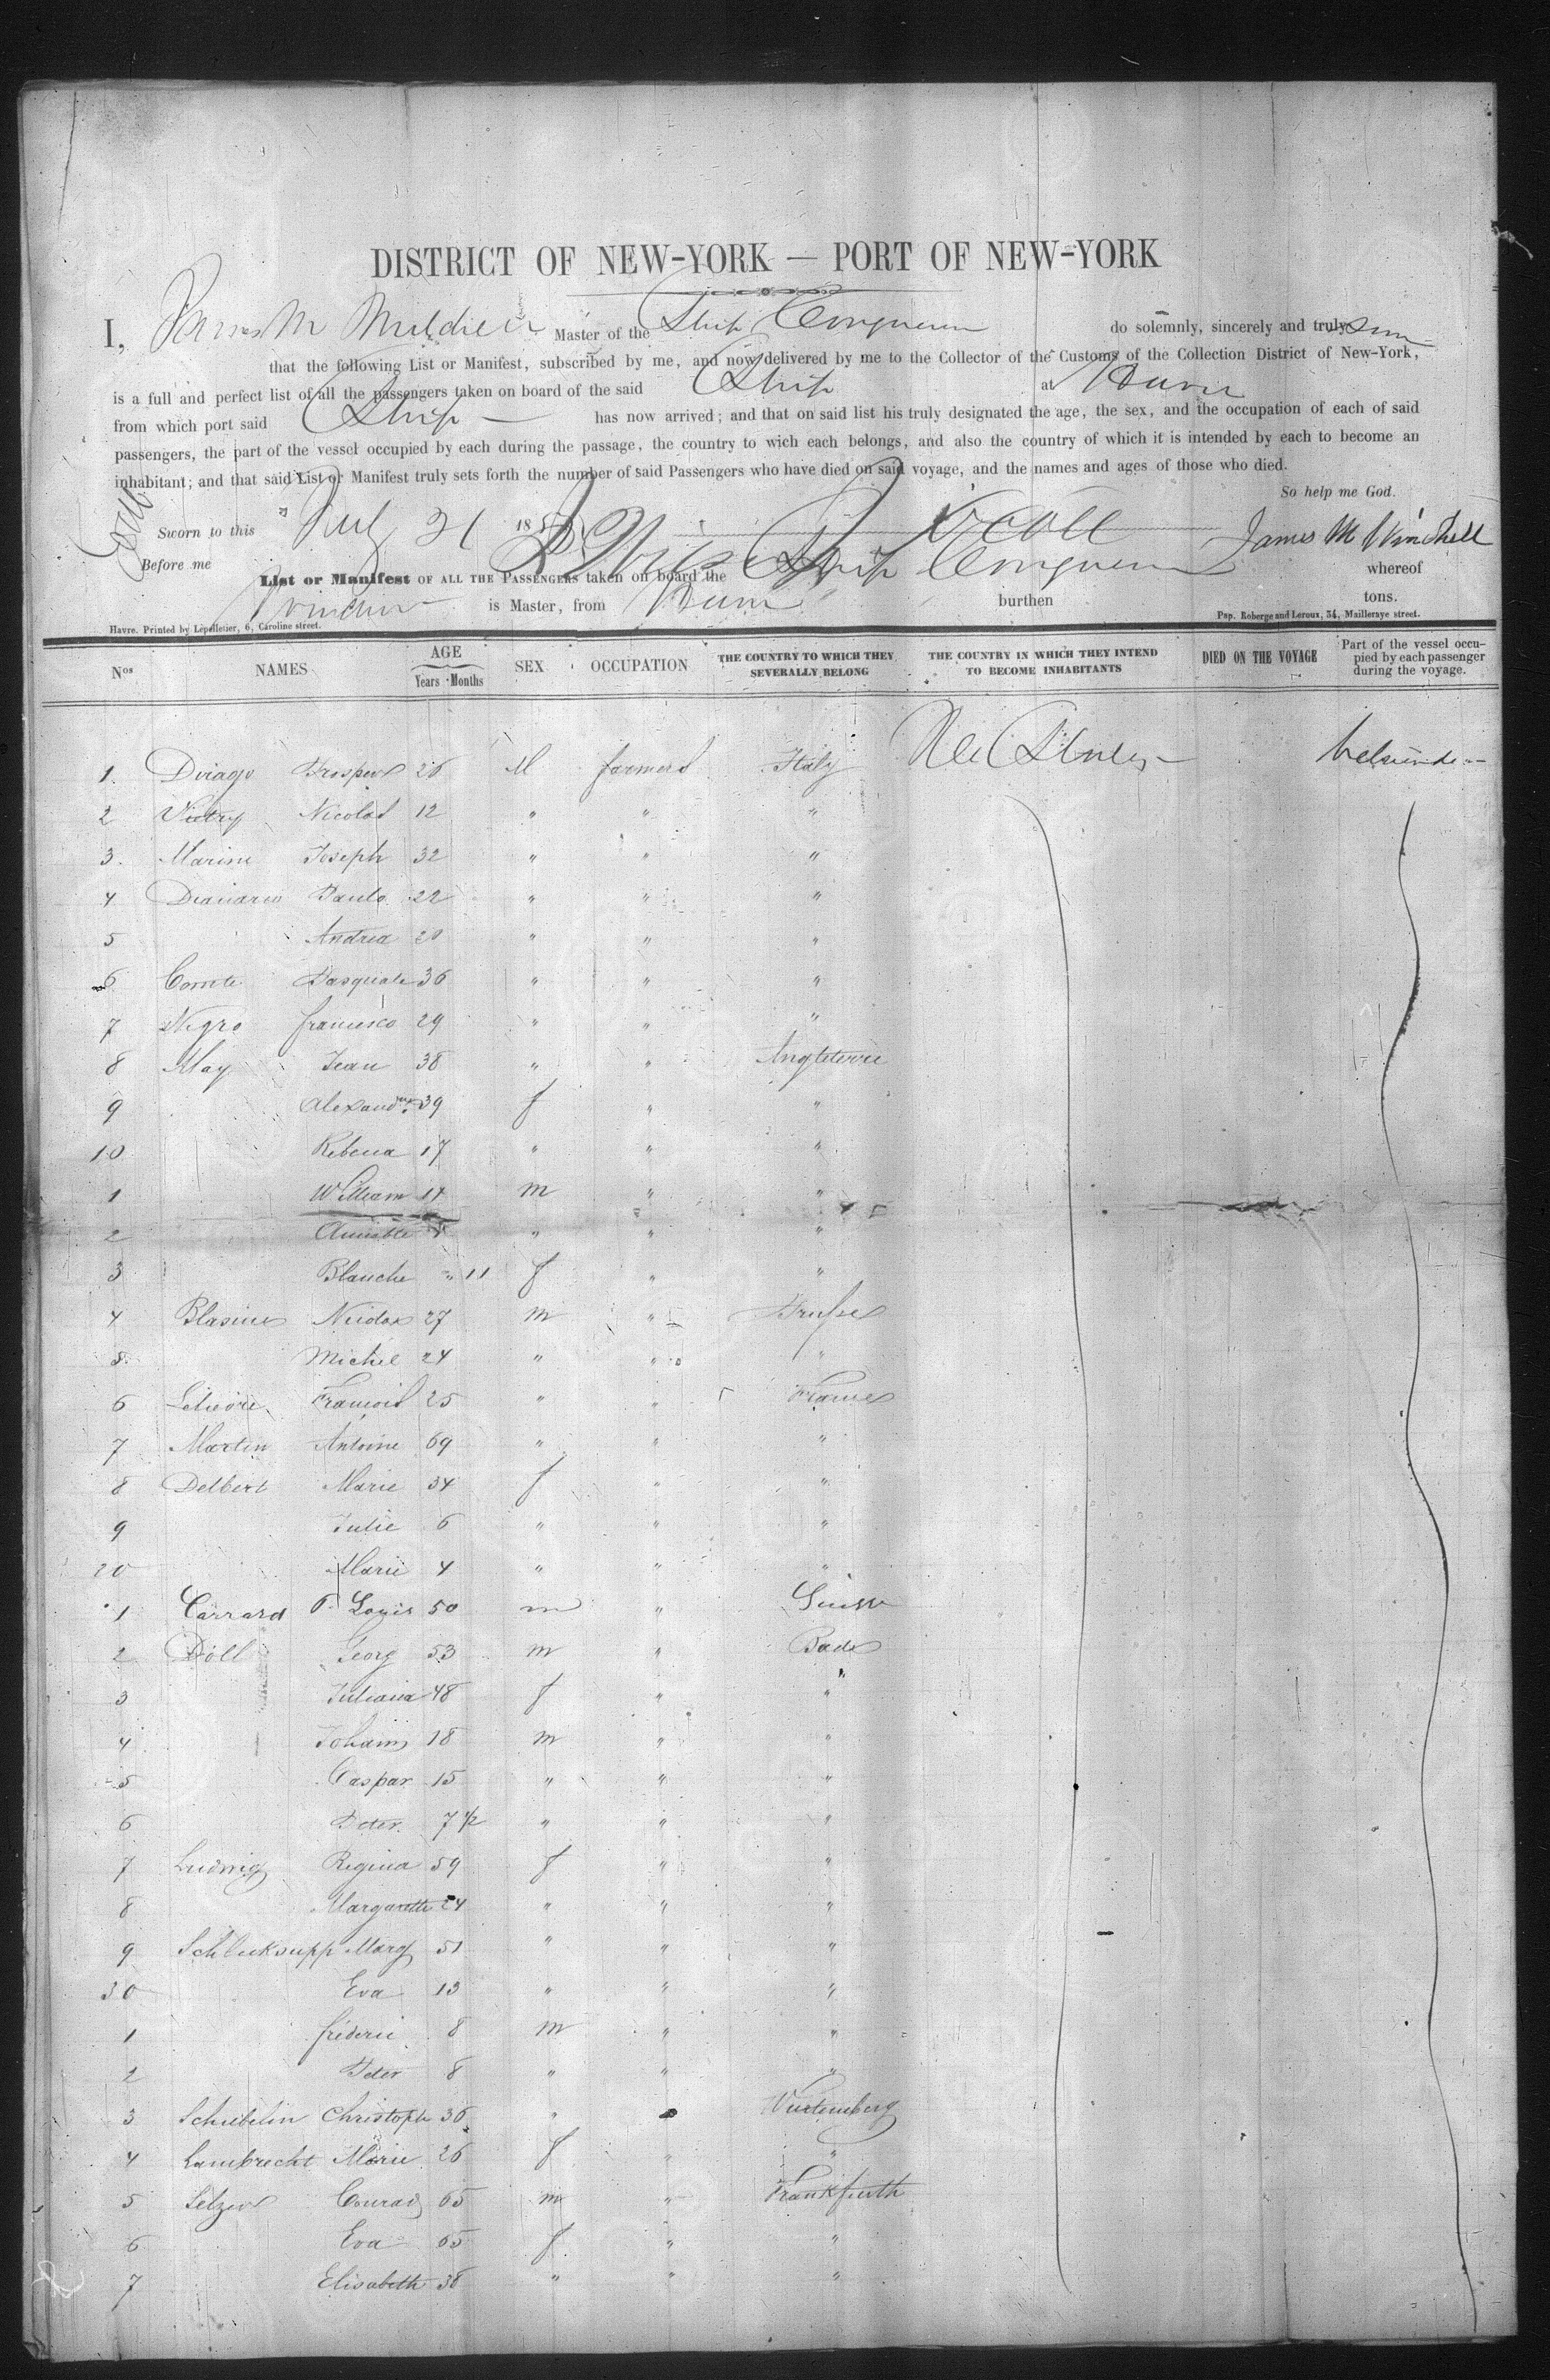 DISTRICT OF NEW-YORK — PORT OF NEW-YORK
I, James M Master of the Ship do solemnly, sincerely and truly
that the following List or Manifest, subscribed by me, and now delivered by me to the Collector of the Customs of the Collection District of New-York,
is a full and perfect list of all the passengers taken on board of the said Ship at Havre
from which port said Ship has now arrived; and that on said list his truly designated the age, the sex, and the occupation of each of said
passengers, the part of the vessel occupied by each during the passage, the country to wich each belongs, and also the country of which it is intended by each to become an
inhabitant; and that said List or Manifest truly sets forth the number of said Passengers who have died on said voyage, and the names and ages of those who died.
So help me God.
Sworn to this 21 185
James M Winchell
Before me
List or Manifest OF ALL THE PASSENGERS taken on board the Ship whereof
is Master, from Havre burthen tons.
Havre. Printed by Lepelletier, 6, Caroline street.
Pap. Roberge and Leroux, 34, Mailleraye street.
Nos NAMES AGE Years Months SEX OCCUPATION THE COUNTRY TO WHICH THEY SEVERALLY BELONG THE COUNTRY IN WHICH THEY INTEND TO BECOME INHABITANTS DIED ON THE VOYAGE Part of the vessel occupied by each passenger during the voyage.
1. Prosper 26 M farmers Italy
2 Nicolas 12 " " "
3. Marine Joseph 32 " " "
4 Paulo 22 " " "
5 Andrea 20 " " "
6 Comte Pasquale 36 " " "
7 Negro francesco 29 " " "
8 May Jean 38 " " Angleterre
9 39 f " "
10 Rebecca 17 " " "
1 William 14 m " "
2 " " "
3 Blanche " 11 f " "
4 Nicolas 27 m " Prusse
5 Michel 24 " " "
6 François 25 " " France
7 Martin Antoine 69 " " "
8 Delbert Marie 34 f " "
9 Julie 6 " " "
20 Marie 4 " " "
1 Carrard Louis 50 m " Suisse
2 Döll Georg 53 m " Bade
3 Juliana 48 f " "
4 Johann 18 m " "
5 Caspar 15 " " "
6 Peter 7 1/2 " " "
7 Ludwig Regina 59 f " "
8 Margarette 24 " " "
9 Schlecksupp Marg 51 " " "
30 Eva 13 " " "
1 fréderic 8 m " "
2 Peter 8 " " "
3 Schiebelin Christoph 36 " " Wurtemberg
4 Lambrecht Marie 26 f " "
5 Selzer Conrad 65 m " Frankfurth
6 Eva 65 f " "
7 Elisabeth 38 " " "